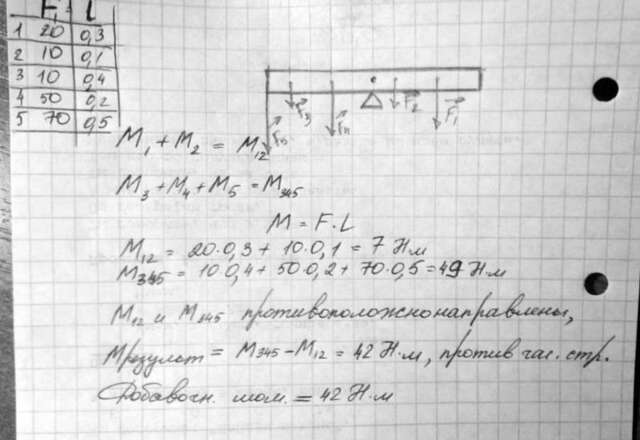 F L
1 20 0,3
2 10 0,1
3 10 0,4
4 50 0,2
5 70 0,5
F5 F3 F4 F2 F1
M1 + M2 = M12
M3 + M4 + M5 = M345
M = F·L
M12 = 20·0,3 + 10·0,1 = 7 Н·м
M345 = 10·0,4 + 50·0,2 + 70·0,5 = 49 Н·м
M12 и M345 противоположно направлены,
Mрезульт = M345 - M12 = 42 Н·м, против час. стр.
Добавочн. мом. = 42 Н·м